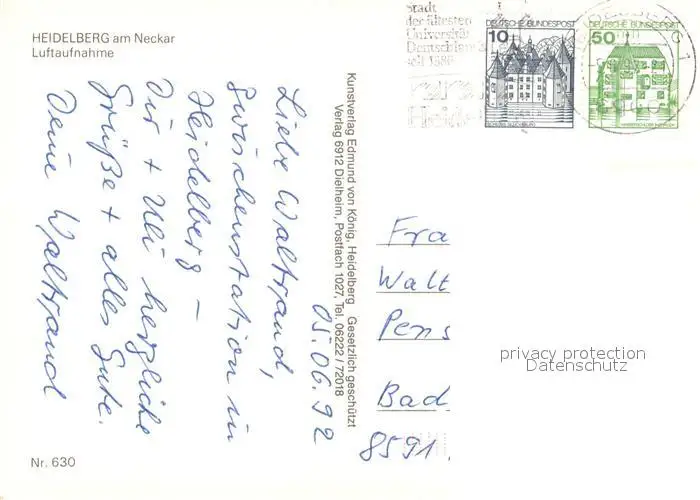 HEIDELBERG am Neckar
Luftaufnahme
Stadt
der ältesten
Universität
Deutschlands
seit 1386
Heidel
DEUTSCHE BUNDESPOST
10
SCHLOSS GLÜCKSBURG
DEUTSCHE BUNDESPOST
50
05.06.92
Liebe Waltraud,
Zwischenstation in
Heidelberg –
Dir + Uli herzliche
Grüße + alles Gute.
Deine Waltraud
Kunstverlag Edmund von König, Heidelberg Gesetzlich geschützt
Verlag 6912 Dielheim, Postfach 1027, Tel. 06222 / 72018
Fra
Walt
Pens
Bad
8591,
privacy protection
Datenschutz
Nr. 630